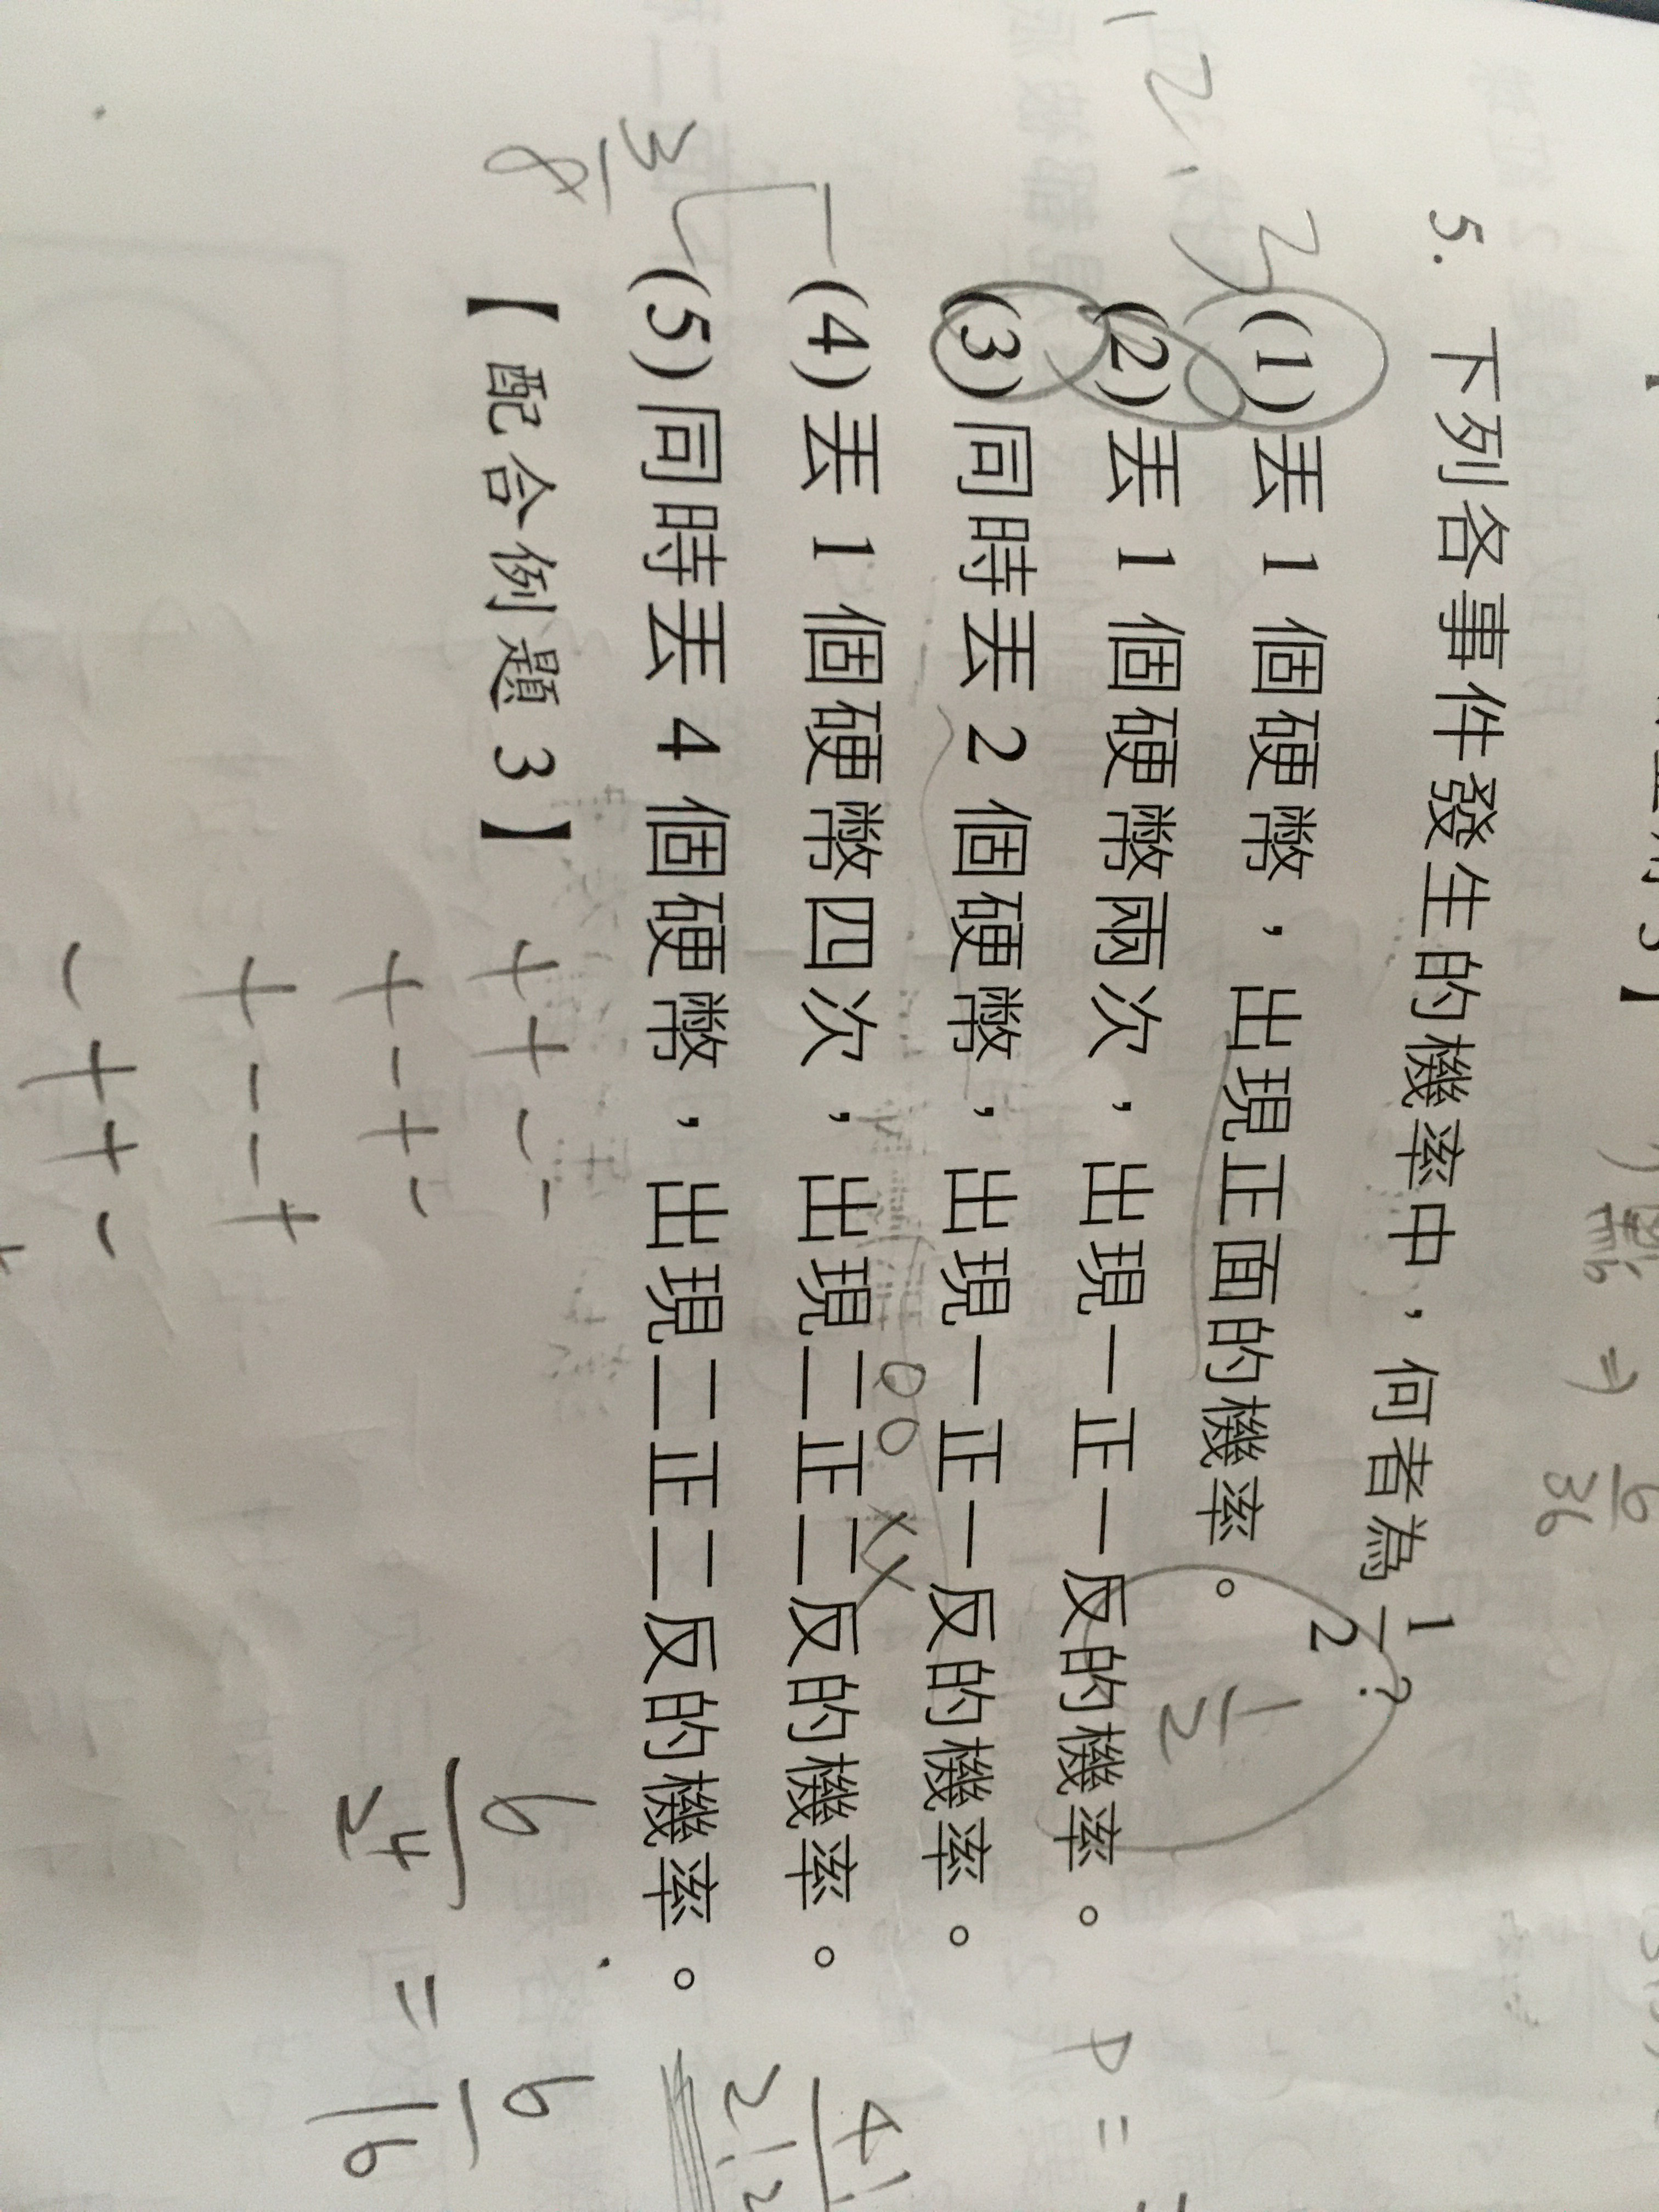 5. 下列各事件發生的機率中，何者為 1/2？
(1)丟 1 個硬幣，出現正面的機率。
(2)丟 1 個硬幣兩次，出現一正一反的機率。
(3)同時丟 2 個硬幣，出現一正一反的機率。
(4)丟 1 個硬幣四次，出現二正二反的機率。
(5)同時丟 4 個硬幣，出現二正二反的機率。
【配合例題 3】
1,2,3
1/2
3/8
OO XX
P =
4!/2!2
++--
+-+-
+--+
-++-
6/2⁴ = 6/16
6/36